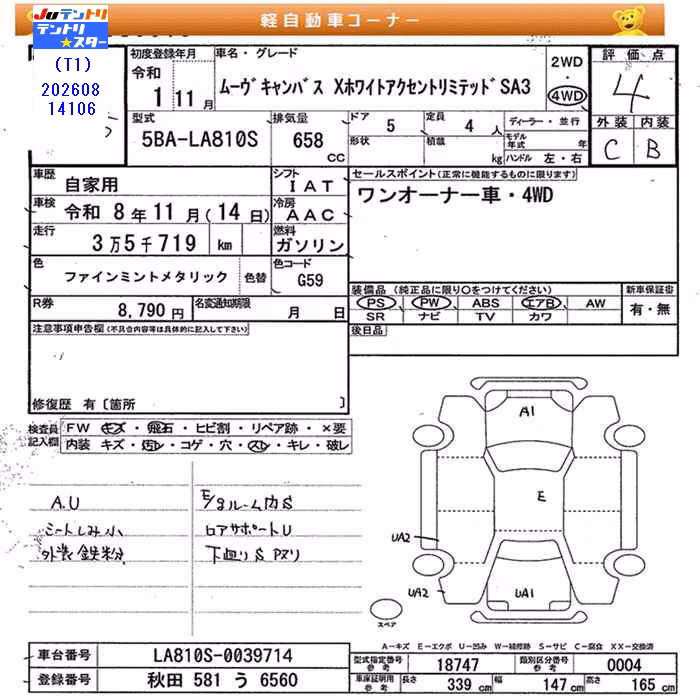 JUテントリ 軽自動車コーナー
テントリ★スター
(T1)
202608
14106
初度登録年月 車名・グレード 2WD・4WD 評価点
令和 1 11月 ムーヴキャンバス XホワイトアクセントリミテッドSA3 4
型式 排気量 ドア 5 定員 4人 ディーラー・並行 外装 内装
5BA-LA810S 658 CC 形状 積載 kg モデル年式 年 C B
ハンドル 左・右
車歴 自家用 シフト IAT セールスポイント(正常に機能するものに限ります)
車検 令和 8年 11月(14日) 冷房 AAC ワンオーナー車・4WD
走行 3万5千719 km 燃料 ガソリン
色 ファインミントメタリック 色替 色コード G59
装備品 (純正品に限り○をつけてください) 新車保証書
R券 8,790円 名変通知期限 月 日 PS PW ABS エアB AW 有・無
SR ナビ TV カワ
注意事項申告欄(不具合内容等は具体的に記入して下さい) 後日品
修復歴 有〔箇所 〕
検査員記入欄 FW キズ・飛石・ヒビ割・リペア跡・×要
内装 キズ・汚レ・コゲ・穴・スレ・キレ・破レ
A.U E/gルーム内S
シートしみ小 ロアサポートU
外装鉄粉 下廻りS
A1
E
UA2
UA2
UA1
スペア
A-キズ E-エクボ U-凹み W-補修跡 S-サビ C-腐食 XX-交換済
車台番号 LA810S-0039714 型式指定番号 参考 18747 類別区分番号 参考 0004
登録番号 秋田 581 う 6560 車庫証明用 参考 長さ 339 cm 幅 147 cm 高さ 165 cm